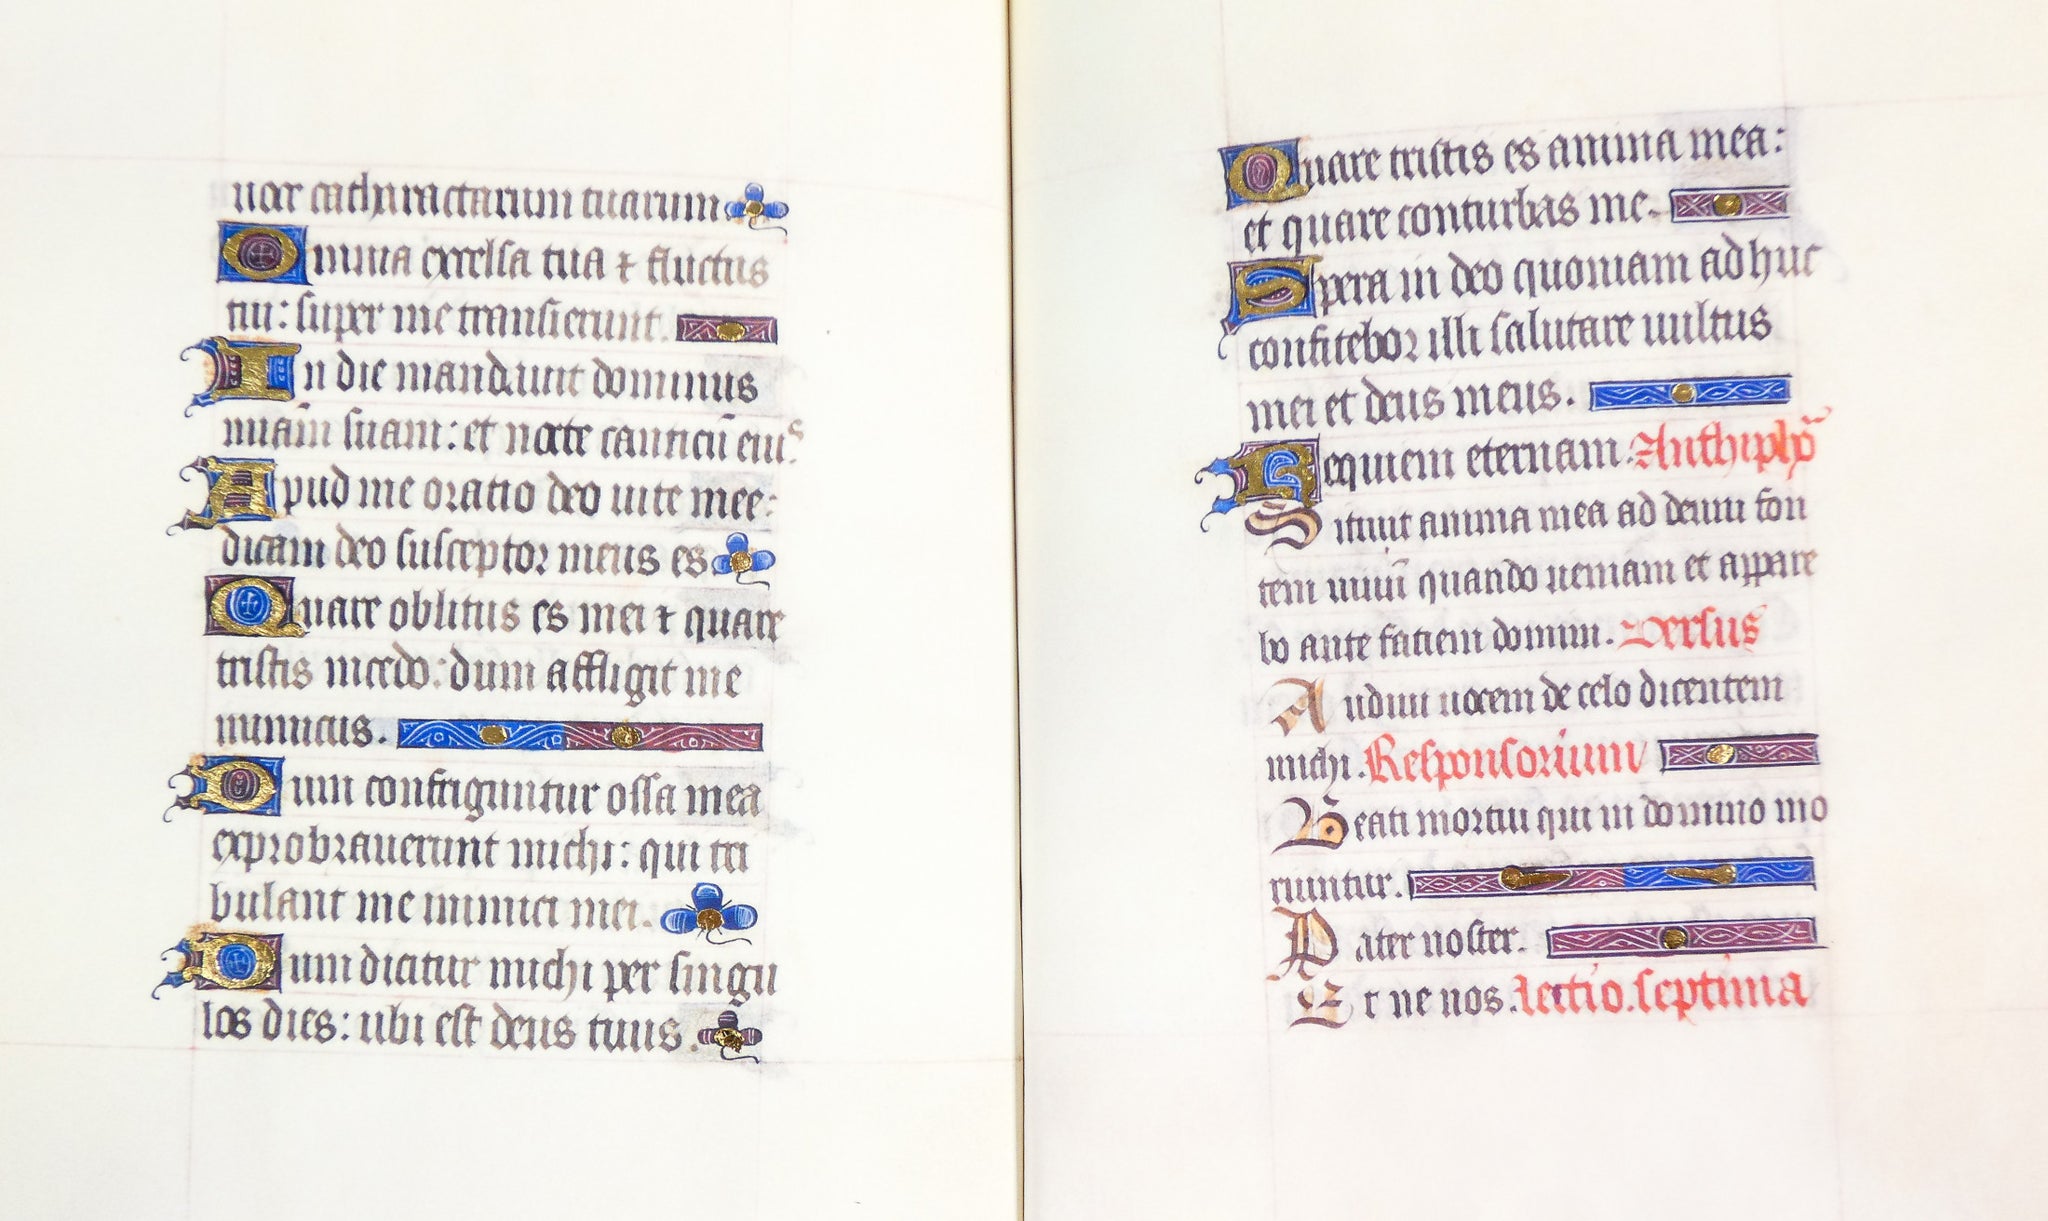 uoce catharactarum tuarum
Omnia excelsa tua ⁊ fluctus
tui: super me transierunt.
In die mandauit dominus
miam̄ suam: et nocte canticū eiuˢ.
Apud me oratio deo uite mee:
dicam deo susceptor meus es.
Quare oblitus es mei ⁊ quare
tristis incedo: dum affligit me
inimicus.
Dum confriguntur ossa mea
exprobrauerunt michi: qui tri
bulant me inimici mei.
Dum dicitur michi per singu
los dies: ubi est deus tuus.
Quare tristis es anima mea:
et quare conturbas me.
Spera in deo quoniam adhuc
confitebor illi salutare uultus
mei et deus meus.
Requiem eternam. Anthiphō
Sitiuit anima mea ad deum fon
tem uiuū quando ueniam et appare
bo ante faciem domini. Versus
Audiui uocem de celo dicentem
michi. Responsorium
Beati mortui qui in domino mo
riuntur.
Pater noster.
Et ne nos. Lectio. septima